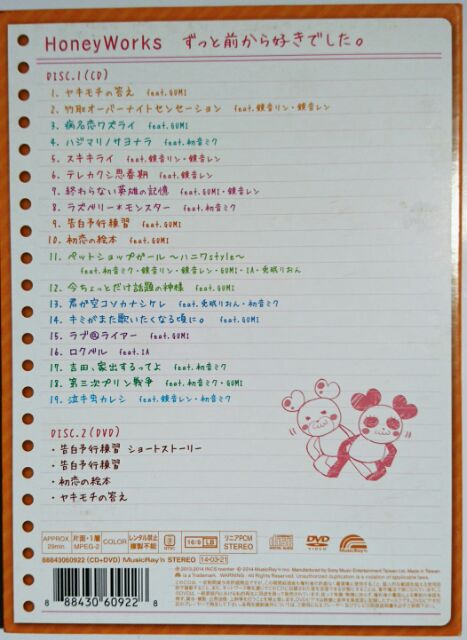 HoneyWorks ずっと前から好きでした。
DISC.1(CD)
1. ヤキモチの答え feat.GUMI
2. 竹取オーバーナイトセンセーション feat.鏡音リン・鏡音レン
3. 病名恋ワズライ feat.GUMI
4. ハジマリノサヨナラ feat.初音ミク
5. スキキライ feat.鏡音リン・鏡音レン
6. テレカクシ思春期 feat.鏡音レン
7. 終わらない英雄の記憶 feat.GUMI・鏡音レン
8. ラズベリー*モンスター feat.初音ミク
9. 告白予行練習 feat.GUMI
10. 初恋の絵本 feat.GUMI
11. ペットショップガール ～ハニワstyle～
feat.初音ミク・鏡音リン・鏡音レン・GUMI・IA・兎眠りおん
12. 今ちょっとだけ話題の神様 feat.GUMI
13. 君が空コソカナシケレ feat.兎眠りおん・初音ミク
14. キミがまた歌いたくなる頃に。 feat.GUMI
15. ラブ@ライアー feat.GUMI
16. ロクベル feat.IA
17. 吉田、家出するってよ feat.初音ミク
18. 第三次プリン戦争 feat.初音ミク・GUMI
19. 泣キ虫カレシ feat.鏡音レン・初音ミク
DISC.2(DVD)
・告白予行練習 ショートストーリー
・告白予行練習
・初恋の絵本
・ヤキモチの答え
APPROX 29min 片面・1層 MPEG-2 COLOR レンタル禁止 複製不能 2 NTSC 16:9 LB リニアPCM STEREO DVD VIDEO MusicRay'n
88843060922 (CD+DVD) /MusicRay'n STEREO 14·03·21
8 88430 60922 8